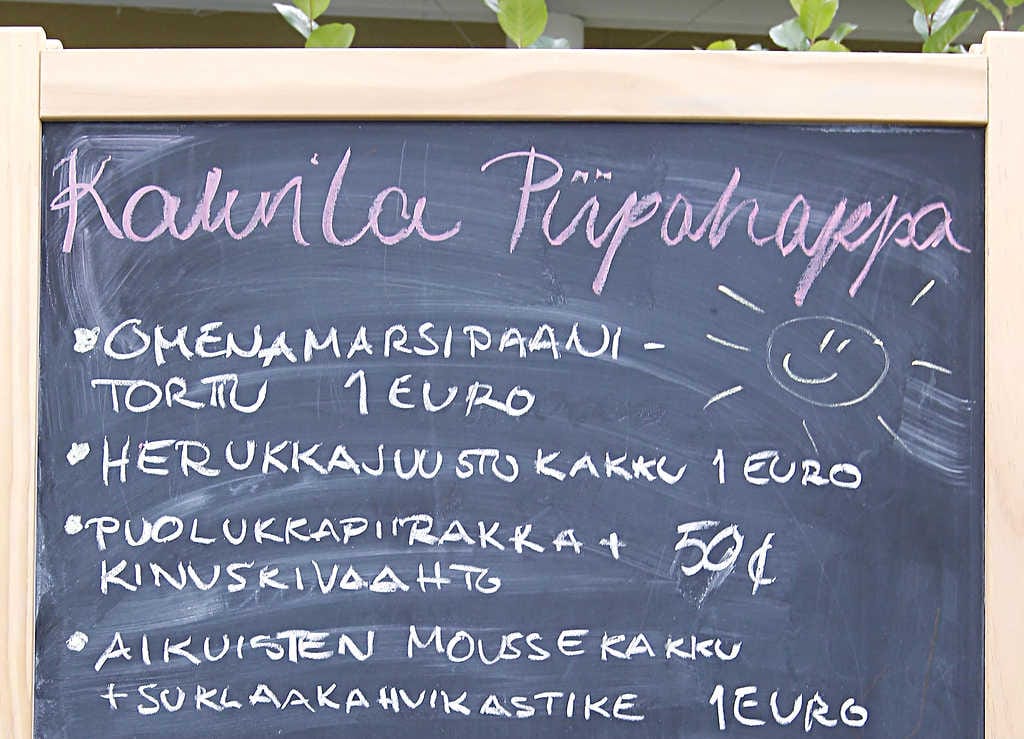 Kahvila Piipahappa
• OMENAMARSIPAANI-
TORTTU 1 EURO
• HERUKKAJUUSTOKAKKU 1 EURO
• PUOLUKKAPIIRAKKA + 50 ¢
KINUSKIVAAHTO
• AIKUISTEN MOUSSEKAKKU
+ SUKLAAKAHVIKASTIKE 1 EURO